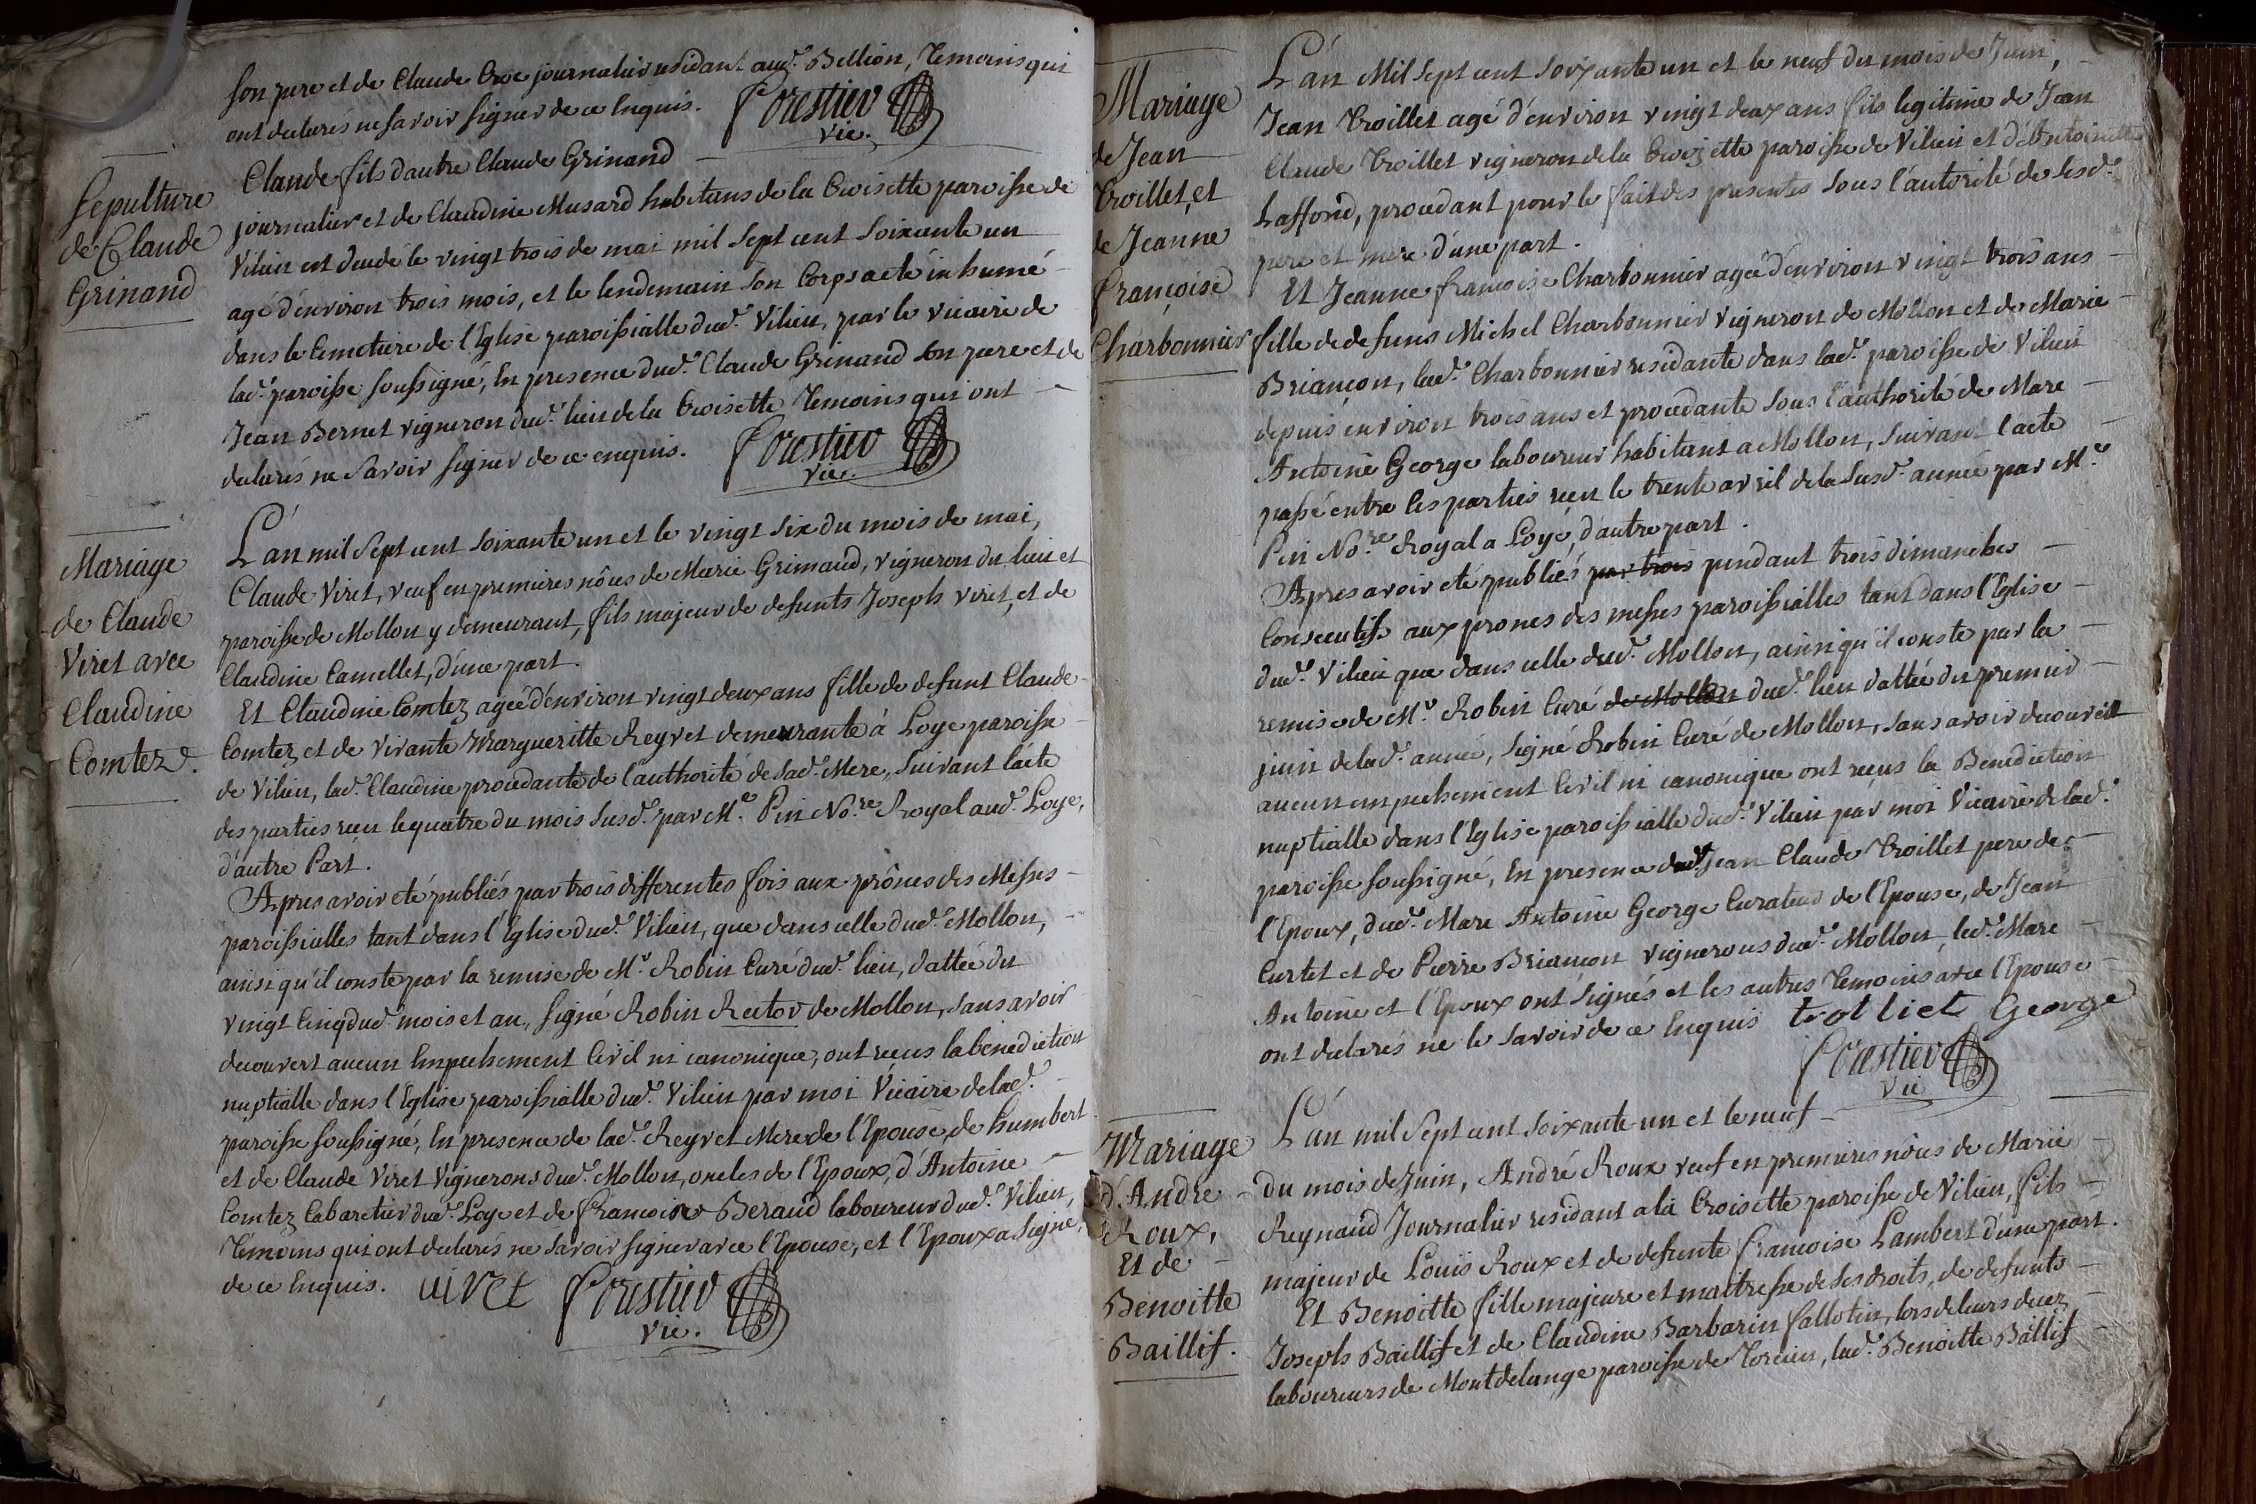 son pere et de Claude Croc journalier residant aud. Bellion, Temoins qui
ont declarés ne savoir signer de ce Enquis. Forestier
vic.
Sepulture
de Claude
Grinand
Claude fils d'autre Claude Grinand
journalier et de Claudine Musard habitans de la Croisette paroisse de
Vilieu est decedé le vingt trois de mai mil sept cent soixante un
agé d'environ trois mois, et le lendemain son Corps a eté inhumé
dans le Cemetiere de l'Eglise paroissialle dud. Vilieu, par le vicaire de
lad. paroisse soussigné, En presence dud. Claude Grinand son pere et de
Jean Bernet vigneron dud. lieu de la Croisette Temoins qui ont
declarés ne savoir signer de ce enquis. Forestier
vic.
Mariage
de Claude
Viret avec
Claudine
Comtez.
L'an mil sept cent soixante un et le vingt six du mois de mai,
Claude Viret, veuf en premieres nôces de Marie Grimaud, vigneron du lieu et
paroisse de Mollon y demeurant, fils majeur de defunts Joseph viret, et de
Claudine Camellet, d'une part.
Et Claudine Comtez agée d'environ vingt deux ans fille de defunt Claude
Comtez et de vivante Margueritte Reyvet demeurante à Loye paroisse
de Vilieu, lad. Claudine procedante de l'authorité de sad. Mere, suivant l'acte
des parties reçu le quatre du mois susd. par Me. Pin No.re Royal aud. Loye,
d'autre Part.
Apres avoir eté publiés par trois differentes fois aux prônes des Messes
paroissialles tant dans l'Eglise dud. Vilieu, que dans celle dud. Mollon,
ainsi qu'il conste par la remise de Mr. Robin Curé dud. lieu, dattée du
vingt cinq dud. mois et an, signé Robin Rector de Mollon, sans avoir
decouvert aucun Empechement Civil ni canonique, ont reçus la benediction
nuptialle dans l'Eglise paroissialle dud. Vilieu par moi Vicaire de lad.
paroisse soussigné, En presence de lad. Reyvet Mere de l'Epouse, de humbert
et de Claude Viret Vignerons dud. Mollon, oncles de l'Epoux, d'Antoine
Comtez Cabaretier dud. Loye et de francois Beraud laboureur dud. Vilieu,
Témoins qui ont declarés ne savoir signer avec l'Epouse, et l'Epoux a signé,
de ce Enquis. viret Forestier
vic.
Mariage
de Jean
Troillet, et
de Jeanne
françoise
Charbonnier
L'an Mil sept cent soixante un et le neuf du mois de Juin,
Jean Troillet agé d'environ vingt deux ans fils legitime de Jean
Claude Troillet vigneron de la Croizette paroisse de Vilieu et d'Antoinette
Laffond, procedant pour le fait des presentes sous l'autorité de sesd.
pere et mere d'une part.
Et Jeanne francoise Charbonnier agée d'environ vingt trois ans
fille de defunts Michel Charbonnier Vigneron de Mollon et de Marie
Briançon, lad. Charbonnier residante dans lad. paroisse de Vilieu
depuis environ trois ans et procedante sous l'authorité de Marc
Antoine George laboureur habitant a Mollon, suivant l'acte
passé entre les parties reçu le trente avril de la susd. année par Me.
Pin No.re Royal a Loye, d'autre part.
Apres avoir eté publiés par trois pendant trois dimanches
Consecutifs aux prones des messes paroissialles tant dans l'Eglise
dud. Vilieu que dans celle dud. Mollon, ainsi qu'il conste par la
remise de Mr. Robin Curé de Mollon dud. lieu dattée du premier
juin de lad. année, signé Robin Curé de Mollon, sans avoir decouvert
aucun empechement Civil ni canonique ont reçus la Benediction
nuptialle dans l'Eglise paroissialle dud. Vilieu par moi Vicaire de lad.
paroisse soussigné, En presence dud. Jean Claude Troillet pere de
l'Epoux, dud. Marc Antoine George Curateur de l'Epouse, de Jean
Curtet et de Pierre Briancon vignerons dud. Mollon, led. Marc
Antoine et l'Epoux ont signés et les autres Temoins avec l'Epouse
ont declarés ne le savoir de ce Enquis trolliet George
Forestier
vic
Mariage
d'André
Roux,
Et de
Benoitte
Baillif.
L'an mil sept cent soixante un et le neuf
du mois de Juin, André Roux veuf en premieres nôces de Marie
Reynaud Journalier residant a la Croisette paroisse de Vilieu, fils
majeur de Louis Roux et de defunte francoise Lambert d'une part.
Et Benoitte fille majeure et maitresse de ses droits, de defunts
Joseph Baillif et de Claudine Barbarin fallotin, lors de leurs decez
laboureurs de Montdelange paroisse de Torcieu, lad. Benoitte Ballif